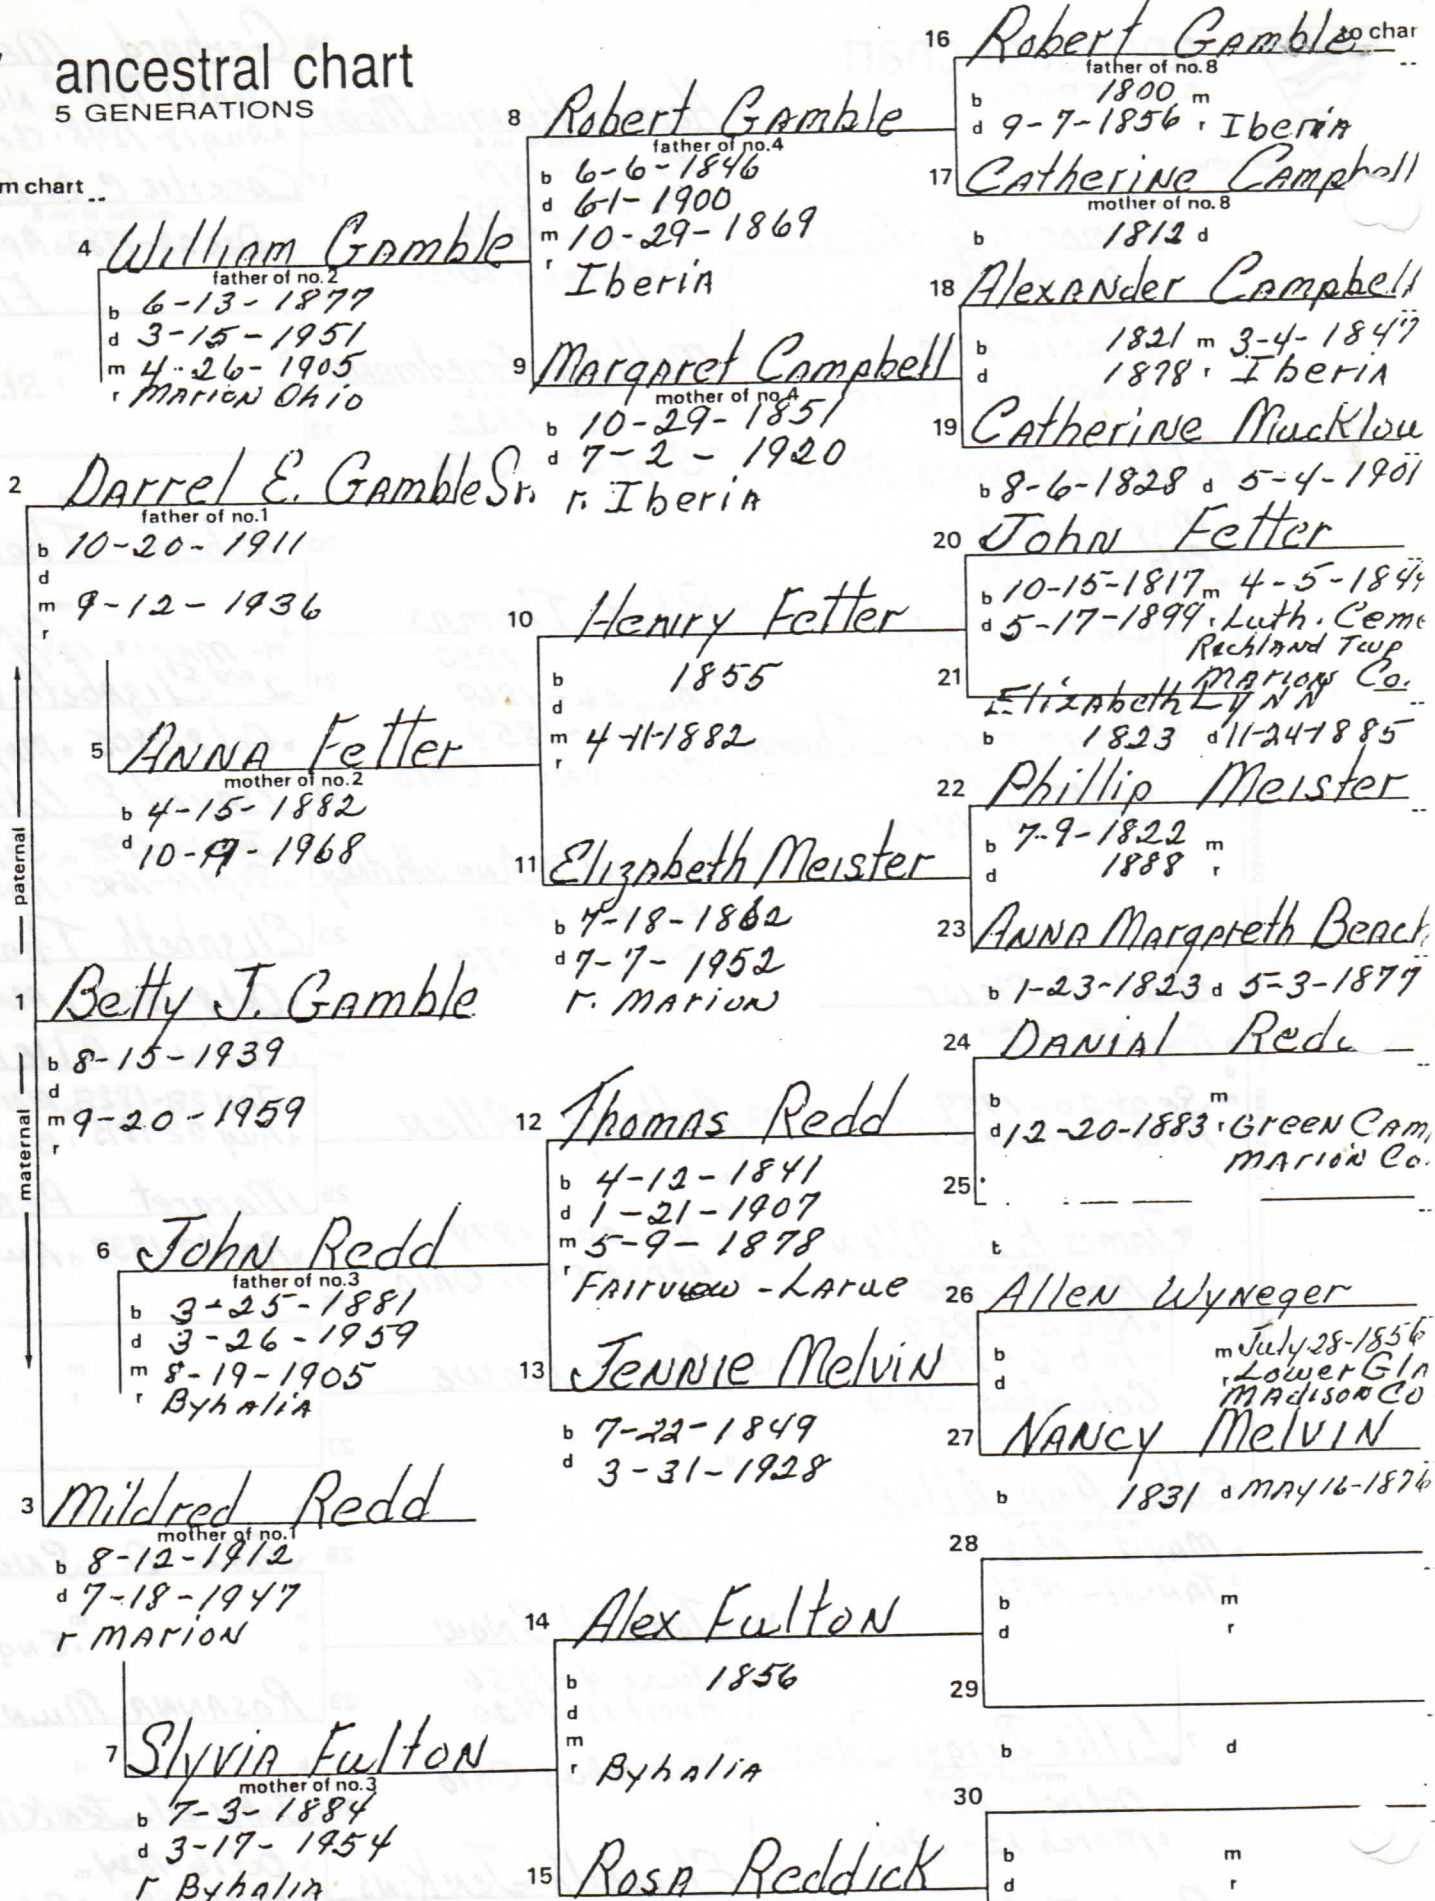 ancestral chart
5 GENERATIONS
m chart
1 Betty J. Gamble
b 8-15-1939
d
m 9-20-1959
r
paternal
maternal
2 Darrel E. Gamble Sr.
father of no.1
b 10-20-1911
d
m 9-12-1936
r
3 Mildred Redd
mother of no.1
b 8-12-1912
d 7-18-1947
r MARION
4 William Gamble
father of no.2
b 6-13-1877
d 3-15-1951
m 4-26-1905
r MARION Ohio
5 ANNA Fetter
mother of no.2
b 4-15-1882
d 10-19-1968
6 John Redd
father of no.3
b 3-25-1881
d 3-26-1959
m 8-19-1905
r ByhaliA
7 Slyvia Fulton
mother of no.3
b 7-3-1884
d 3-17-1954
r ByhaliA
8 Robert Gamble
father of no.4
b 6-6-1846
d 6-1-1900
m 10-29-1869
r Iberia
9 Margaret Campbell
mother of no.4
b 10-29-1851
d 7-2-1920
r. Iberia
10 Henry Fetter
b 1855
d
m 4-11-1882
r
11 Elizabeth Meister
b 7-18-1862
d 7-7-1952
r. MARION
12 Thomas Redd
b 4-12-1841
d 1-21-1907
m 5-9-1878
r FAirview - LArue
13 Jennie Melvin
b 7-22-1849
d 3-31-1928
14 Alex Fulton
b 1856
d
m
r ByhaliA
15 Rosa Reddick
16 Robert Gamble
to char
father of no.8
b 1800 m
d 9-7-1856 r Iberia
17 Catherine Campbell
mother of no.8
b 1812 d
18 Alexander Campbell
b 1821 m 3-4-1847
d 1878 r Iberia
19 Catherine Mucklou
b 8-6-1828 d 5-4-1901
20 John Fetter
b 10-15-1817 m 4-5-184
d 5-17-1899 r Luth. Ceme
Richland Twp
Marion Co.
21 Elizabeth Lynn
b 1823 d 11-24-1885
22 Phillip Meister
b 7-9-1822 m
d 1888 r
23 ANNA Margareth Beach
b 1-23-1823 d 5-3-1877
24 DANIAL Red
b m
d 12-20-1883 r Green Cam
MArion Co.
25
26 Allen Wyneger
b m July 28-1856
d r Lower Gla
Madison Co
27 NANCY MelVIN
b 1831 d MAy 16-1876
28
b m
d r
29
b d
30
b m
d r